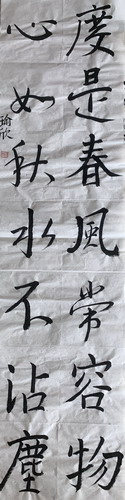 度是春風常容物
心如秋水不沾塵
瑜欣